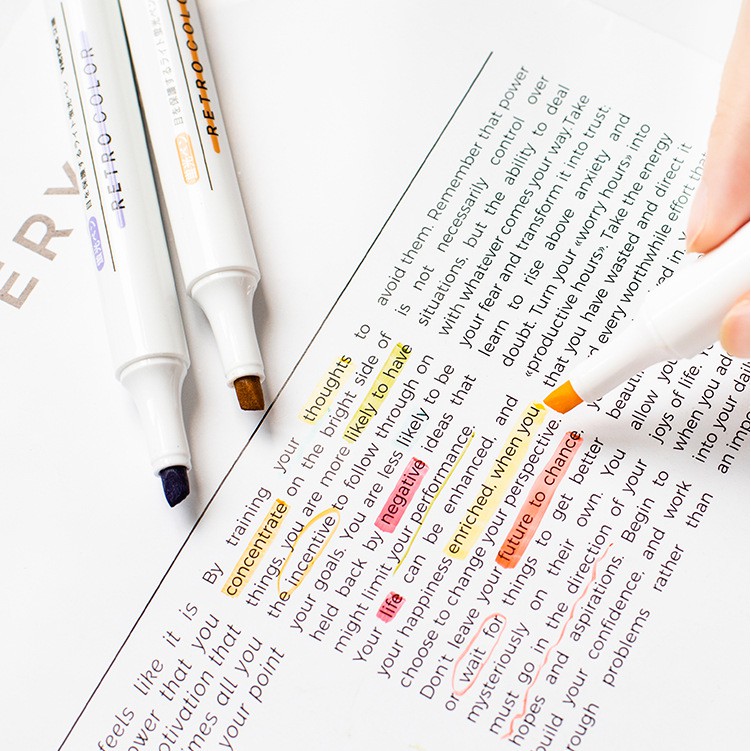 ERY
RETRO COLOR
RETRO COLOR
feels like it is
ower that you
otivation that
imes all you
your point
By training your thoughts to
concentrate on the bright side of
things, you are more likely to have
the incentive to follow through on
your goals. You are less likely to be
held back by negative ideas that
might limit your performance.
Your life can be enhanced, and
your happiness enriched, when you
choose to change your perspective.
Don't leave your future to chance,
or wait for things to get better
mysteriously on their own. You
must go in the direction of your
hopes and aspirations. Begin to
build your confidence, and work
rough problems rather than
avoid them. Remember that power
is not necessarily control over
situations, but the ability to deal
with whatever comes your way. Take
your fear and transform it into trust;
learn to rise above anxiety and
doubt. Turn your «worry hours» into
«productive hours». Take the energy
that you have wasted and direct it
every worthwhile effort that
ed in,
beau
allow yo
joys of life.
when you ad
into your dail
an imp